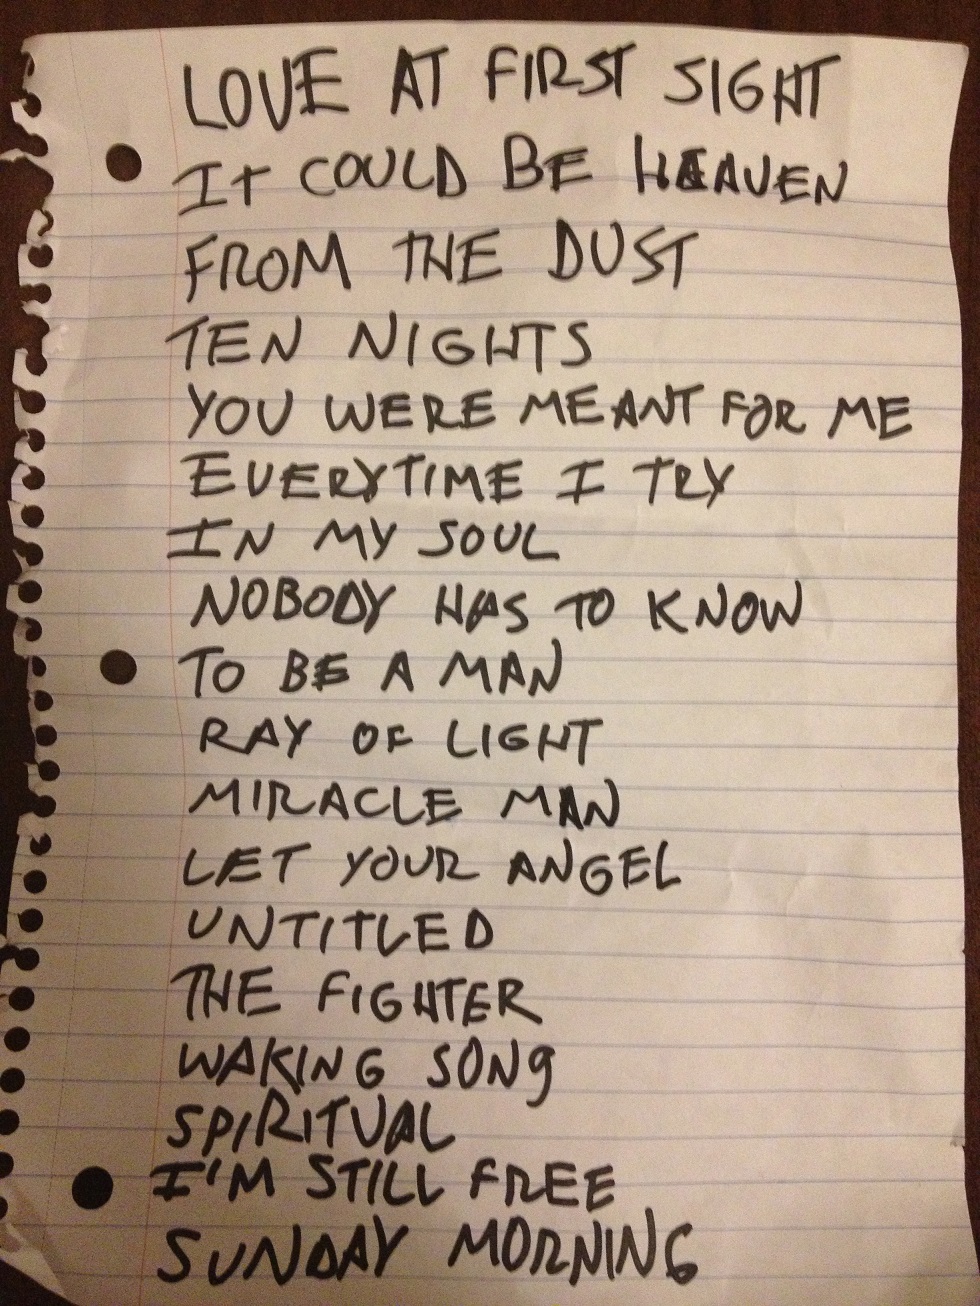 LOVE AT FIRST SIGHT
It COULD BE HEAVEN
FROM THE DUST
TEN NIGHTS
YOU WERE MEANT FOR ME
EVERYTIME I TRY
IN MY SOUL
NOBODY HAS TO KNOW
TO BE A MAN
RAY OF LIGHT
MIRACLE MAN
LET YOUR ANGEL
UNTITLED
THE FIGHTER
WAKING SONg
SPIRITUAL
I'M STILL FREE
SUNDAY MORNING